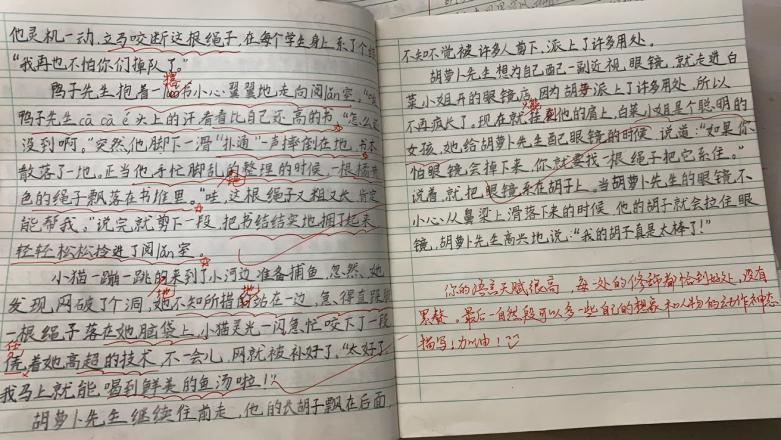 他灵机一动,立马咬断这根绳子,在每个学生身上系了个结
“我再也不怕你们掉队了。”
鸭子先生抱着一摞书小心翼翼地走向阅览室。
鸭子先生cā cā é头上的汗看看比自己还高的书,“怎么还
没到啊,”突然他脚下一滑“扑通”一声摔倒在地,书本
散落了一地。正当他手忙脚乱的整理的时候,一根
色的绳子飘落在书堆里。“哇,这根绳子又粗又长,肯定
能帮我。”说完就剪下一段,把书结结实地捆了起来
轻轻松松拎进了阅览室。
小猫一蹦一跳的来到了小河边准备捕鱼,忽然,她
发现,网破了个洞,她不知所措的站在一边,急得直跺脚
一根绳子落在她脑袋上,小猫灵光一闪急忙咬下了一段
凭着她高超的技术,不一会儿,网就被补好了。“太好了
我马上就能喝到鲜美的鱼汤啦!”
胡萝卜先生继续往前走,他的大胡子飘在后面,
不知不觉被许多人剪下,派上了许多用处。
胡萝卜先生想为自己配一副近视,眼镜,就走进白
菜小姐开的眼镜店,因为胡子派上了许多用处,所以
不再疯长了。现在就挂到他的肩上,白菜小姐是个聪明的
女孩,她给胡萝卜先生配眼镜的时候,说道:“如果你
怕眼镜会掉下来,你就要找一根绳子把它系住。”
说着,就把眼镜系在胡子上,当胡萝卜先生的眼镜不
小心从鼻梁上滑落下来的时候,他的胡子就会拉住眼
镜,胡萝卜先生高兴地,说:“我的胡子真是太棒了!”
你的语言天赋很高,每一处的修辞都恰到好处,没有
累赘。最后一自然段可以多一些自己的想象和人物的动作神态
描写!加油!